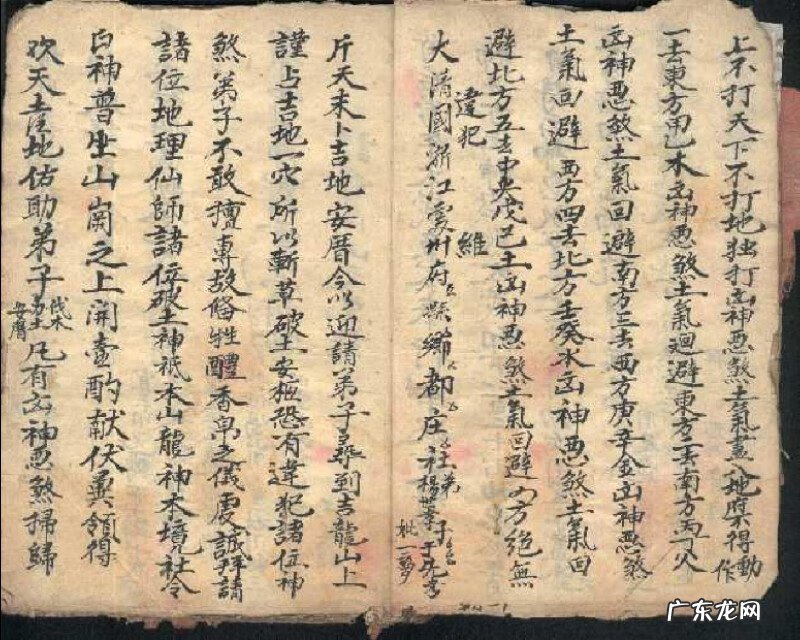 上不打天下不打地独打凶神恶煞土氣盖入地禁得動作
一去東方甲乙木凶神恶煞土氣迴避東方二去南方丙丁火
凶神恶煞土氣回避南方三去西方庚辛金凶神恶煞
土氣回避西方四去北方壬癸水凶神恶煞土氣回
避北方五去中央戊己土凶神恶煞土氣回避四方絕無
違犯 維
大清國浙江處州府縣鄉都庄社
斤天未卜吉地安厝今以迎請弟子尋到吉龍山上
謹占吉地一穴所以斬草破土安柩恐有違犯諸位神
煞弟子不敢擅專故備牲醴香帛之儀虔誠拜請
諸位地理仙師諸位破土神祇本山龍神本境社令
白神普坐山崗之上開壺酌献伏冀領得
欢天土地佑助弟子伐木安厝凡有凶神恶煞掃歸
广东龙网